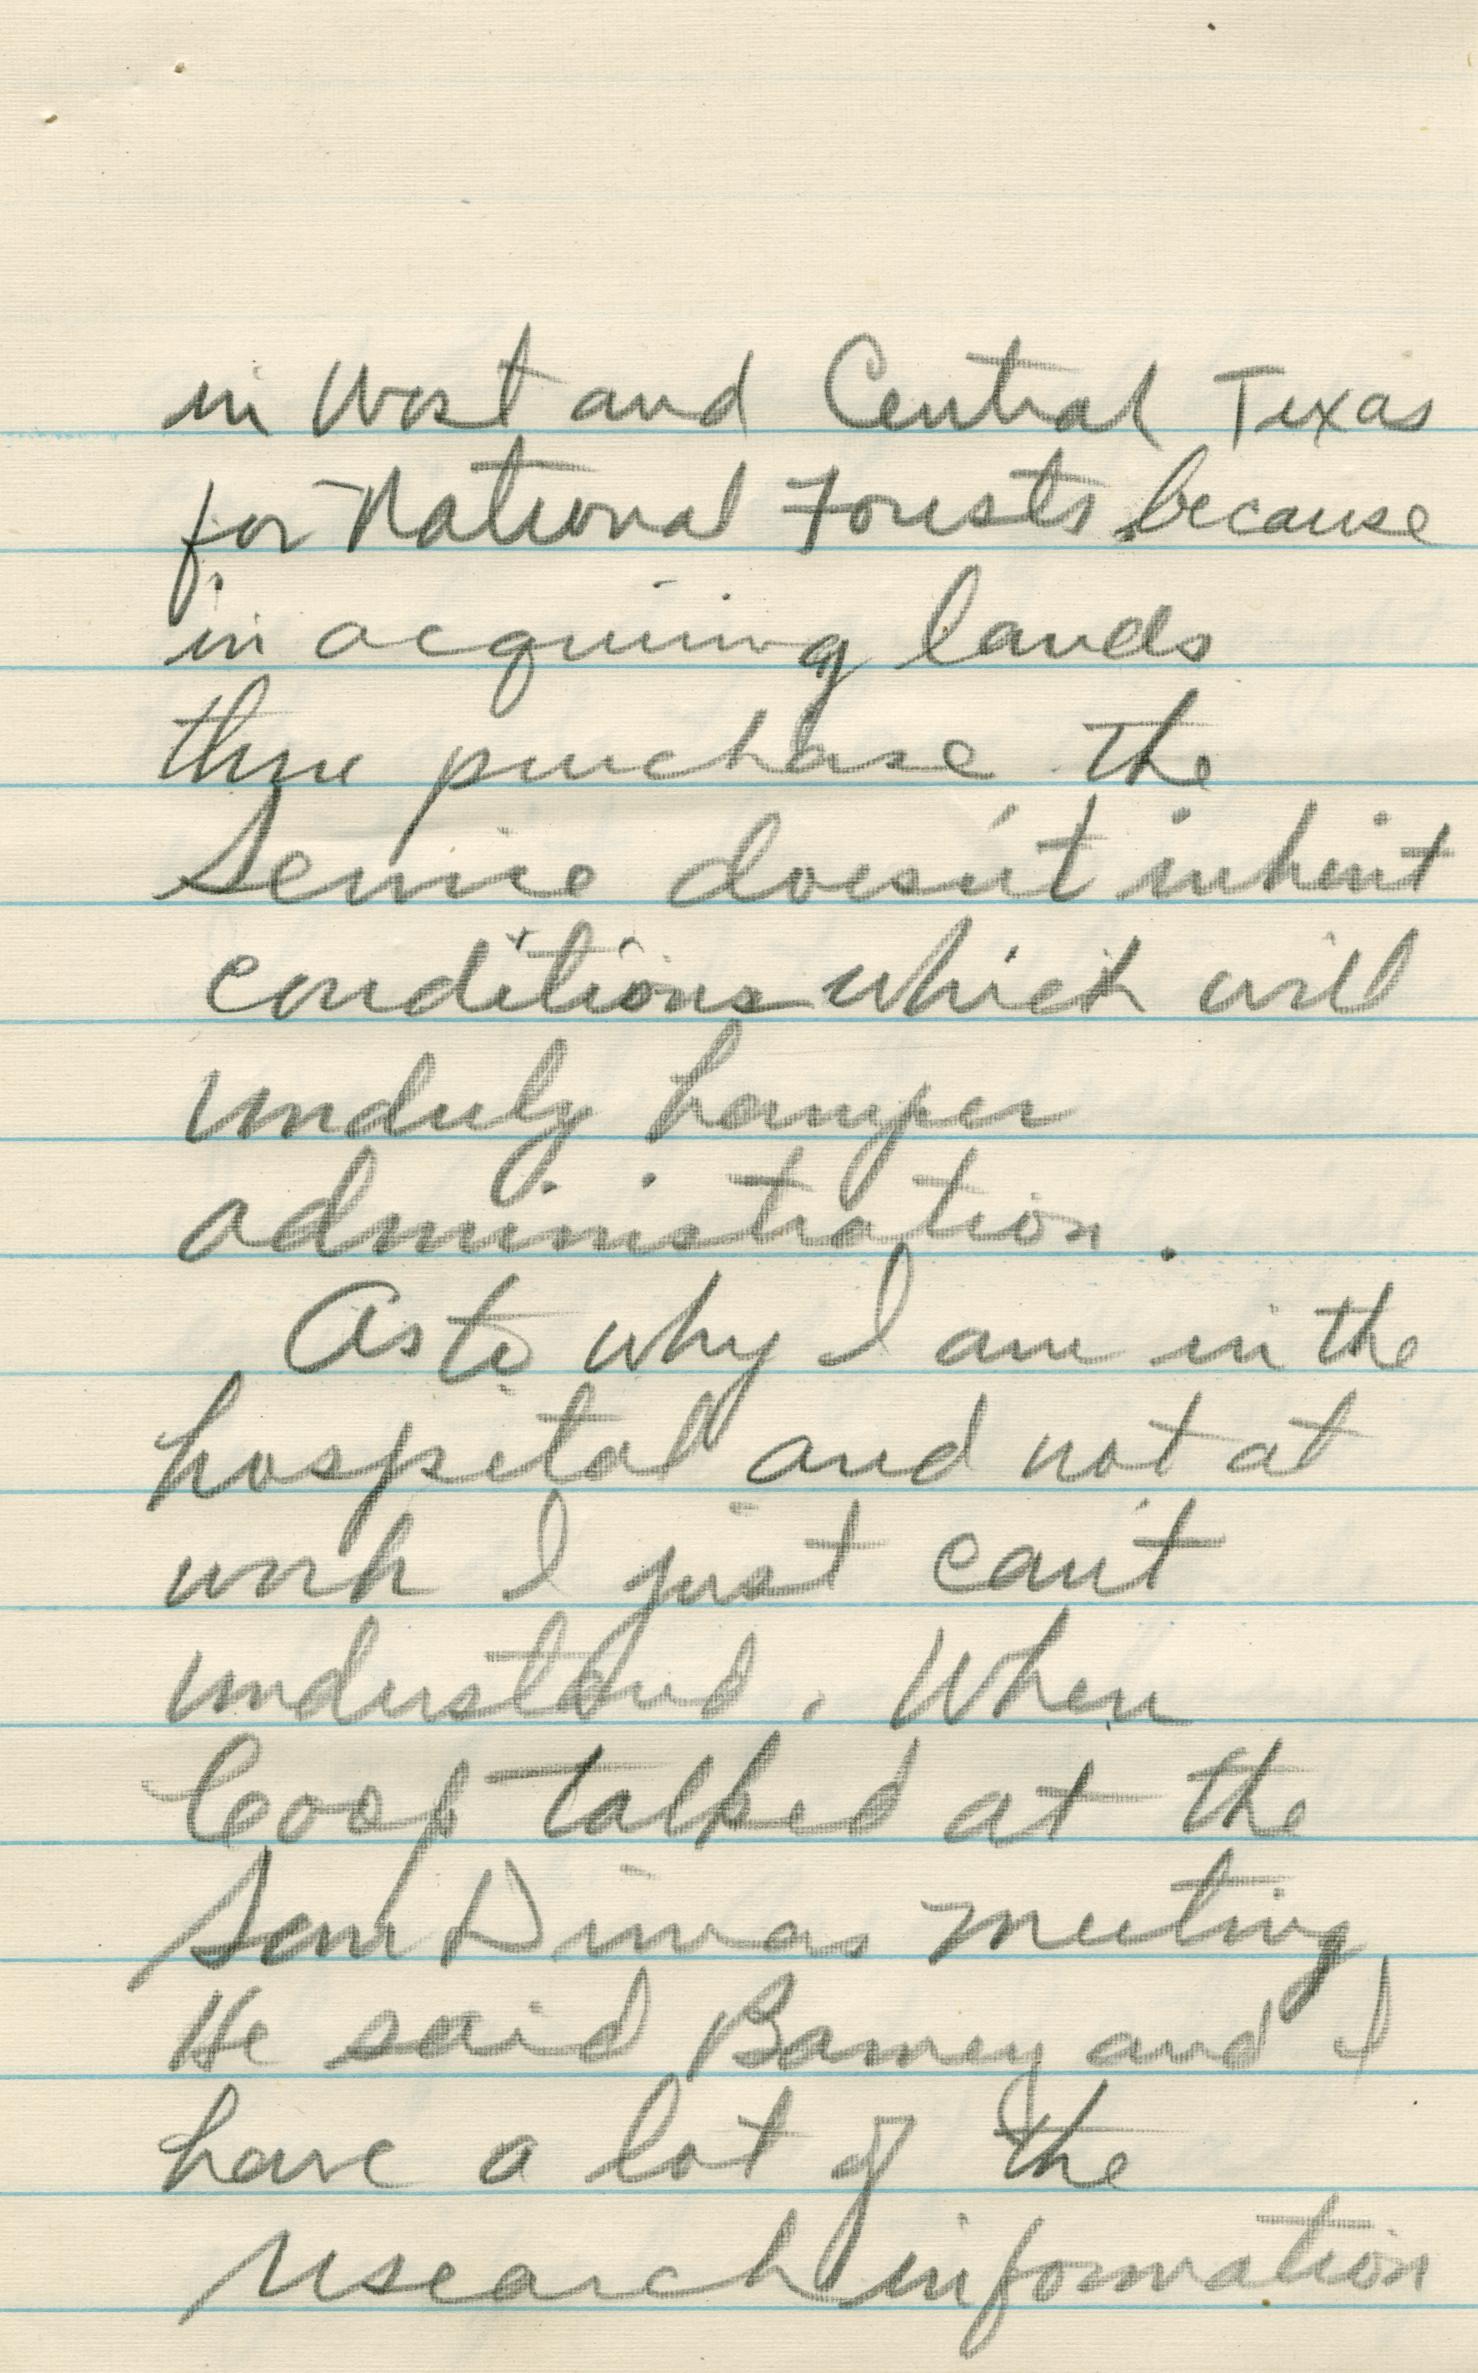 in West and Central Texas
for National Forests because
in acquiring lands
thru purchase the
Service doesn't inherit
conditions which will
unduly hamper
administration.
As to why I am in the
hospital and not at
work I just can't
understand. When
Coop talked at the
San Dimas meeting
He said Barney and I
have a lot of the
research information